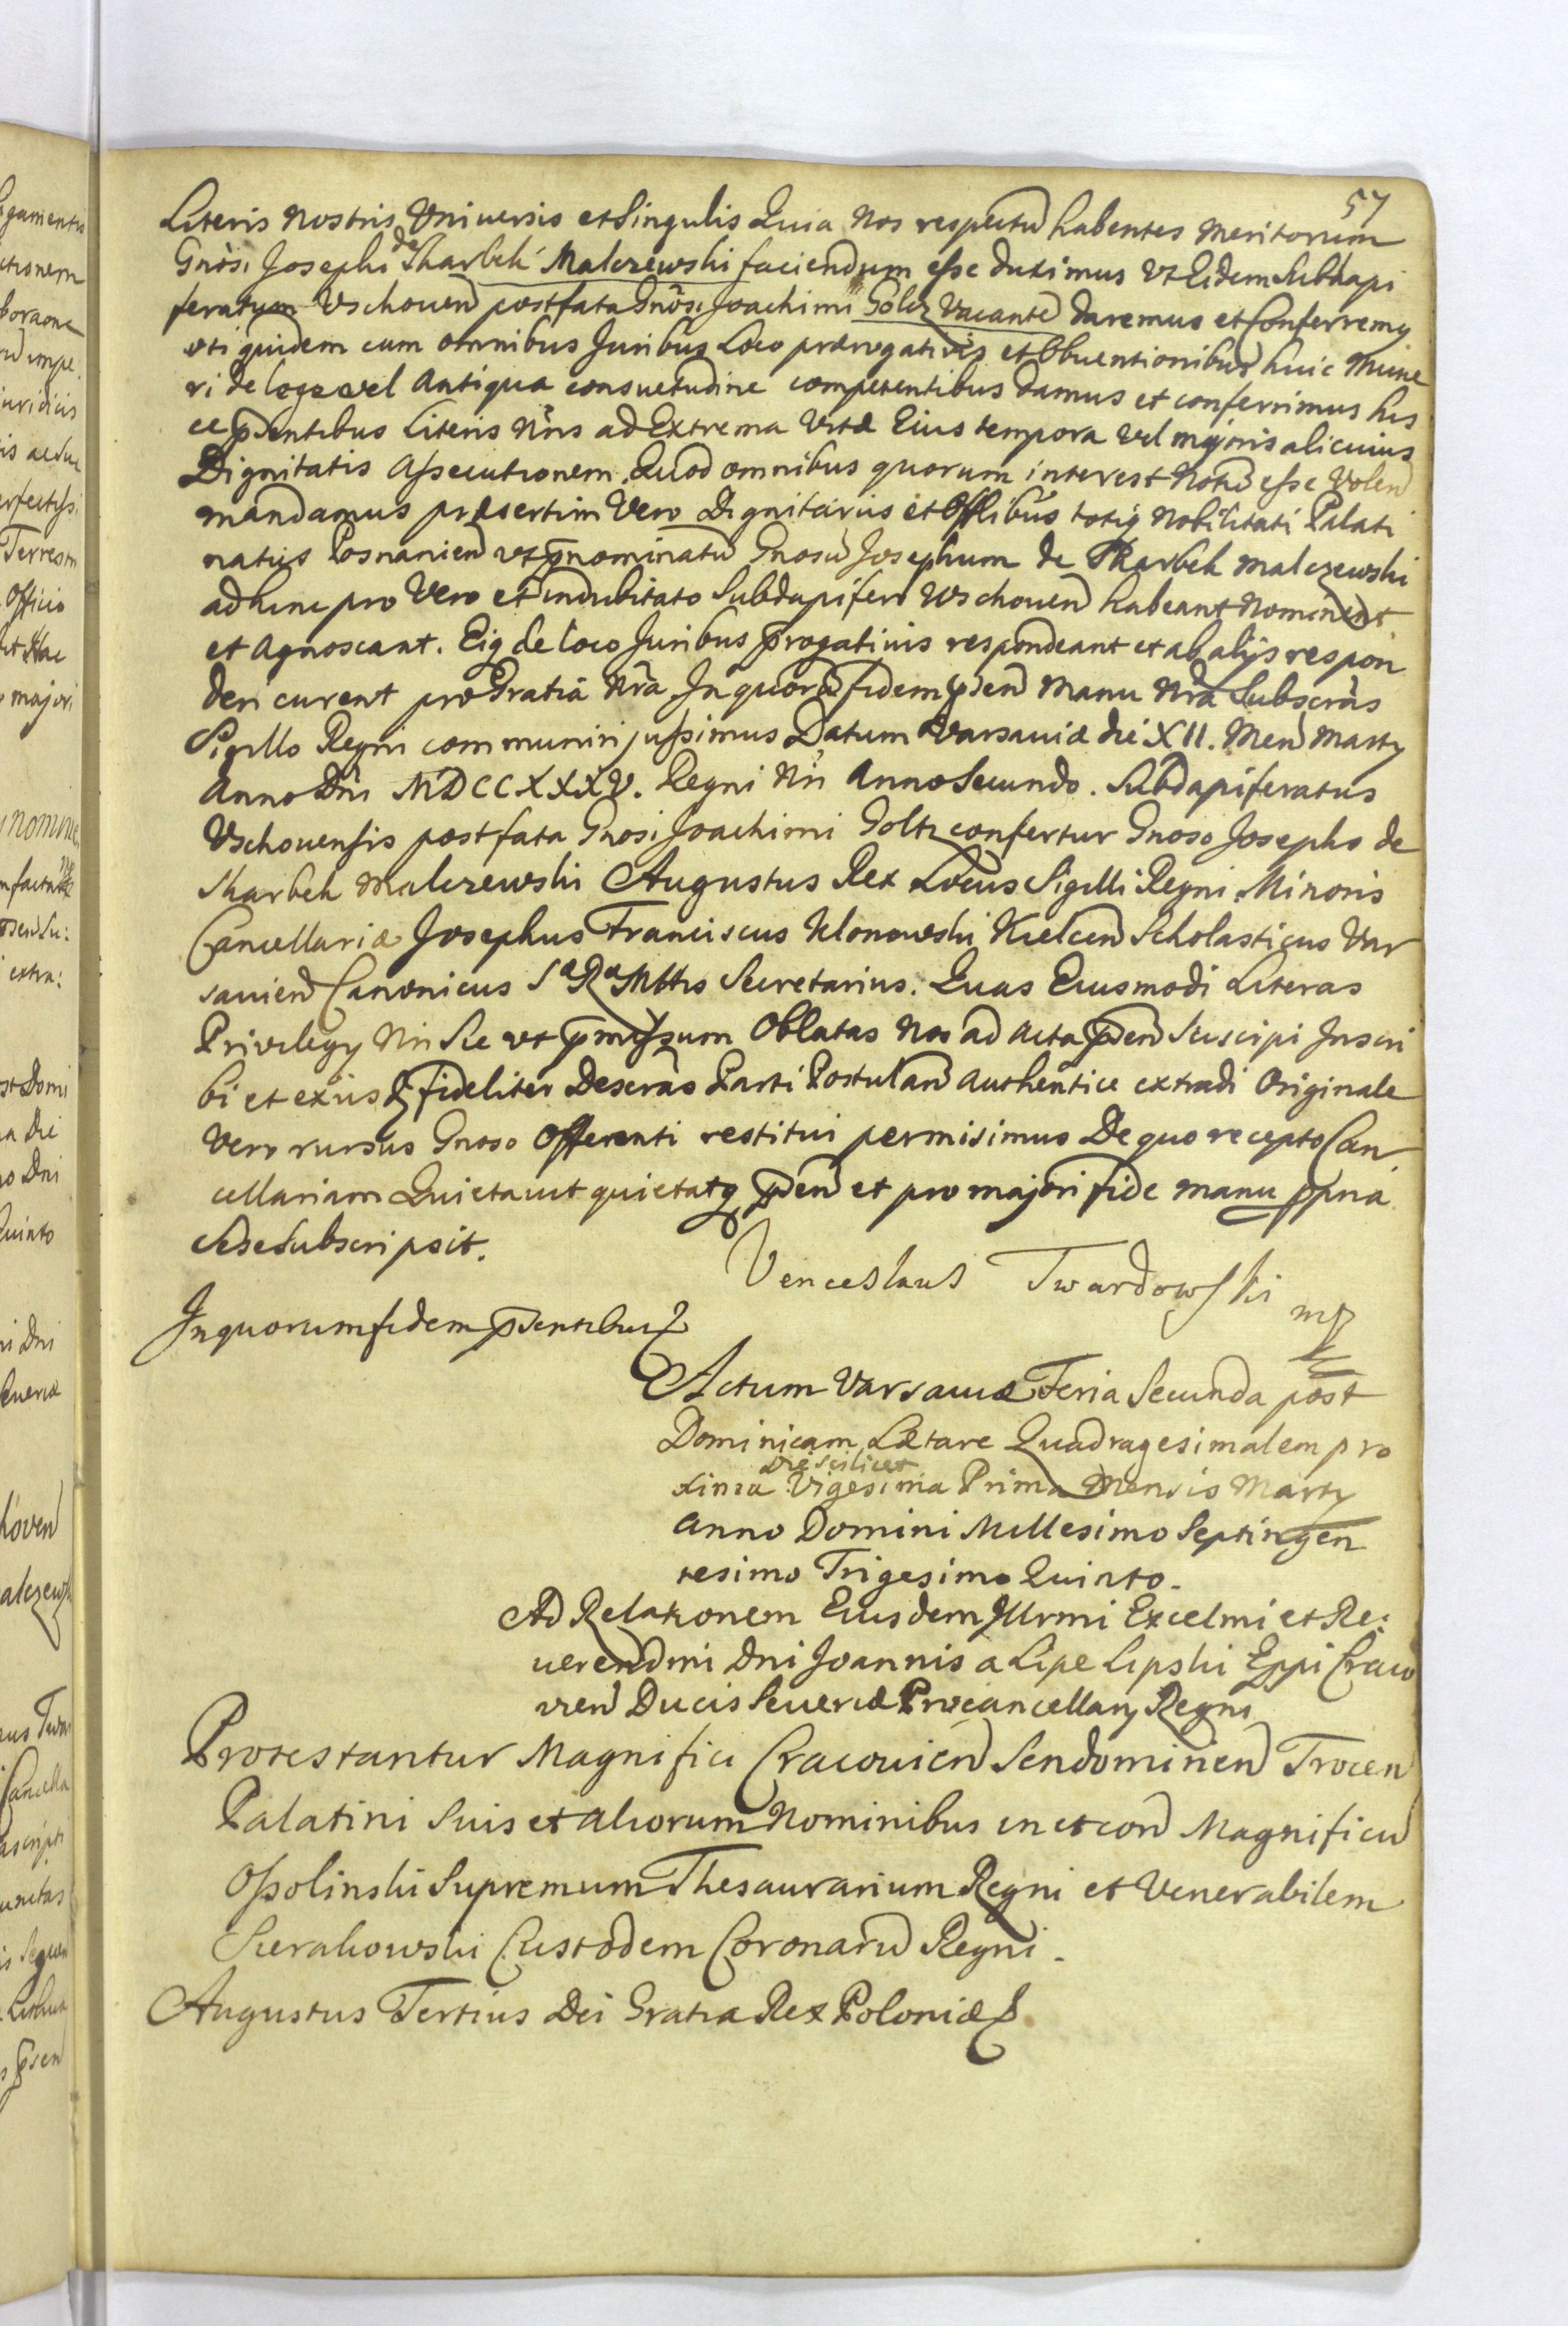 57
Literis Nostris Universis et Singulis Quia Nos respectu habentes Meritorum
Gnosi Josephi de Skarbek Malczewski faciendum esse duximus Vt Eidem Subdapi
feratum Vschoven postfata Gnosi Joachimi Goltz Vacante daremus et Conferremus
uti quidem cum omnibus Juribus Loco prærogativis et Obventionibus huic Mune
ri de lege vel Antiqua consuetudine competentibus damus et conferrimus his
ce pntibus Literis Nris ad Extrema Vitæ Eius tempora vel majoris alicuius
Dignitatis Assecutionem. Quod omnibus quorum interest Notu esse Volen
mandamus præsertim Vero Dignitariis et Offlibus totiq Nobilitati Palati
natus Posnanien ut pnominatu Gnosu Josephum de Skarbek Malczewski
adhinc pro Vero et indubitato Subdapifero Wschouen habeant Nominent
et Agnoscant. Eiq de loco Juribus progativis respondeant et ab alijs respon
deri curent pro Gratia Nra. In quoru fidem psen Manu Nra Subscras
Sigillo Regni communiri jussimus Datum Varsaviæ die XII. Men Martij
Anno Dni MDCCXXXV. Regni Nri Anno Secundo. Subdapiferatus
Vschouensis postfata Gnosi Joachimi Goltz confertur Gnoso Josepho de
Skarbek Malczewski Augustus Rex Locus Sigilli Regni Minoris
Cancellariæ Josephus Franciscus Klonowski Kielcen Scholasticus Var
savien Canonicus Sa Ra Mttis Secretarius. Quas Eiusmodi Literas
Privilegy Nri Se ut pmissum Oblatas Nos ad Acta psen Suscipi Inscri
bi et ex iis fideliter Descras Parti Postulan Authentice extradi Originale
Vero rursus Gnoso Offerenti restitui permisimus De quo recepto Can
cellariam Quietavit quietatq psen et pro majori fide manu ppria
Sese Subscripsit.
Venceslaus Twardowski mp
In quorum fidem psentibus
Actum Varsaviæ Feria Secunda post
Dominicam Lætare Quadragesimalem pro
xima die scilicet Vigesima Prima Mensis Martij
Anno Domini Millesimo Septingen
tesimo Trigesimo Quinto.
Ad Relationem Eiusdem Illrmi Excelmi et Re:
verendmi Dni Joannis a Lipe Lipski Eppi Craco
vien Ducis Severiæ Procancellarij Regni
Protestantur Magnifici Cracovien Sendomirien Trocen
Palatini Suis et aliorum Nominibus in et con Magnificu
Ossolinski Supremum Thesaurarium Regni et Venerabilem
Sierakowski Custodem Coronaru Regni.
Augustus Tertius Dei Gratia Rex Poloniæ